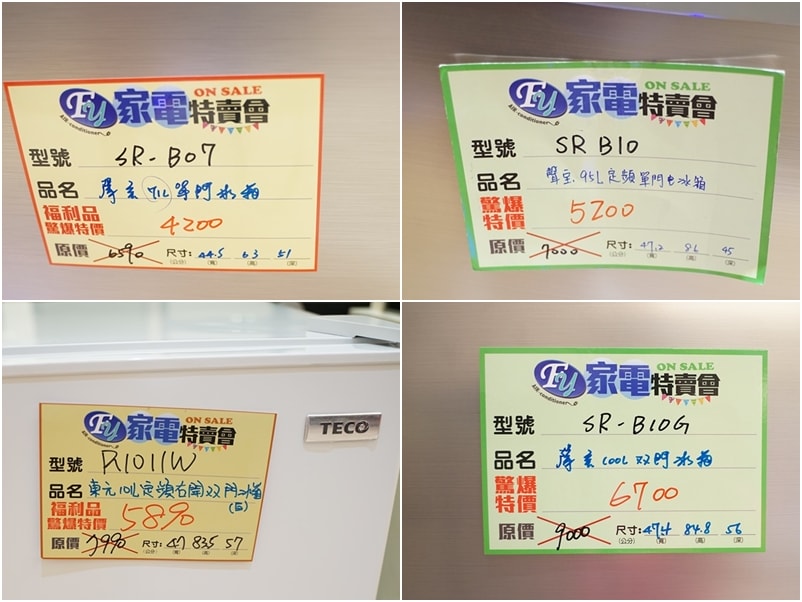 Fy 家電特賣會 ON SALE
Air-conditioner
型號 SR-B07
品名 聲宝 71L 單門冰箱
福利品
驚爆特價 4200
原價 6590 尺寸: 44.5 63 51
(公分) (寬) (高) (深)
Fy 家電特賣會 ON SALE
Air-conditioner
型號 SR B10
品名 聲宝 95L定頻單門電冰箱
驚爆
特價 5200
原價 7000 尺寸: 47.2 86 45
(公分) (寬) (高) (深)
TECO
Fy 家電特賣會 ON SALE
Air-conditioner
型號 R1011W
品名 東元101L定頻右開双門冰箱
(白)
福利品
驚爆特價 5890
原價 7990 尺寸: 47 83.5 57
(公分) (寬) (高) (深)
Fy 家電特賣會 ON SALE
Air-conditioner
型號 SR-B10G
品名 聲宝 100L 双門冰箱
驚爆
特價 6700
原價 9000 尺寸: 47.4 84.8 56
(公分) (寬) (高) (深)